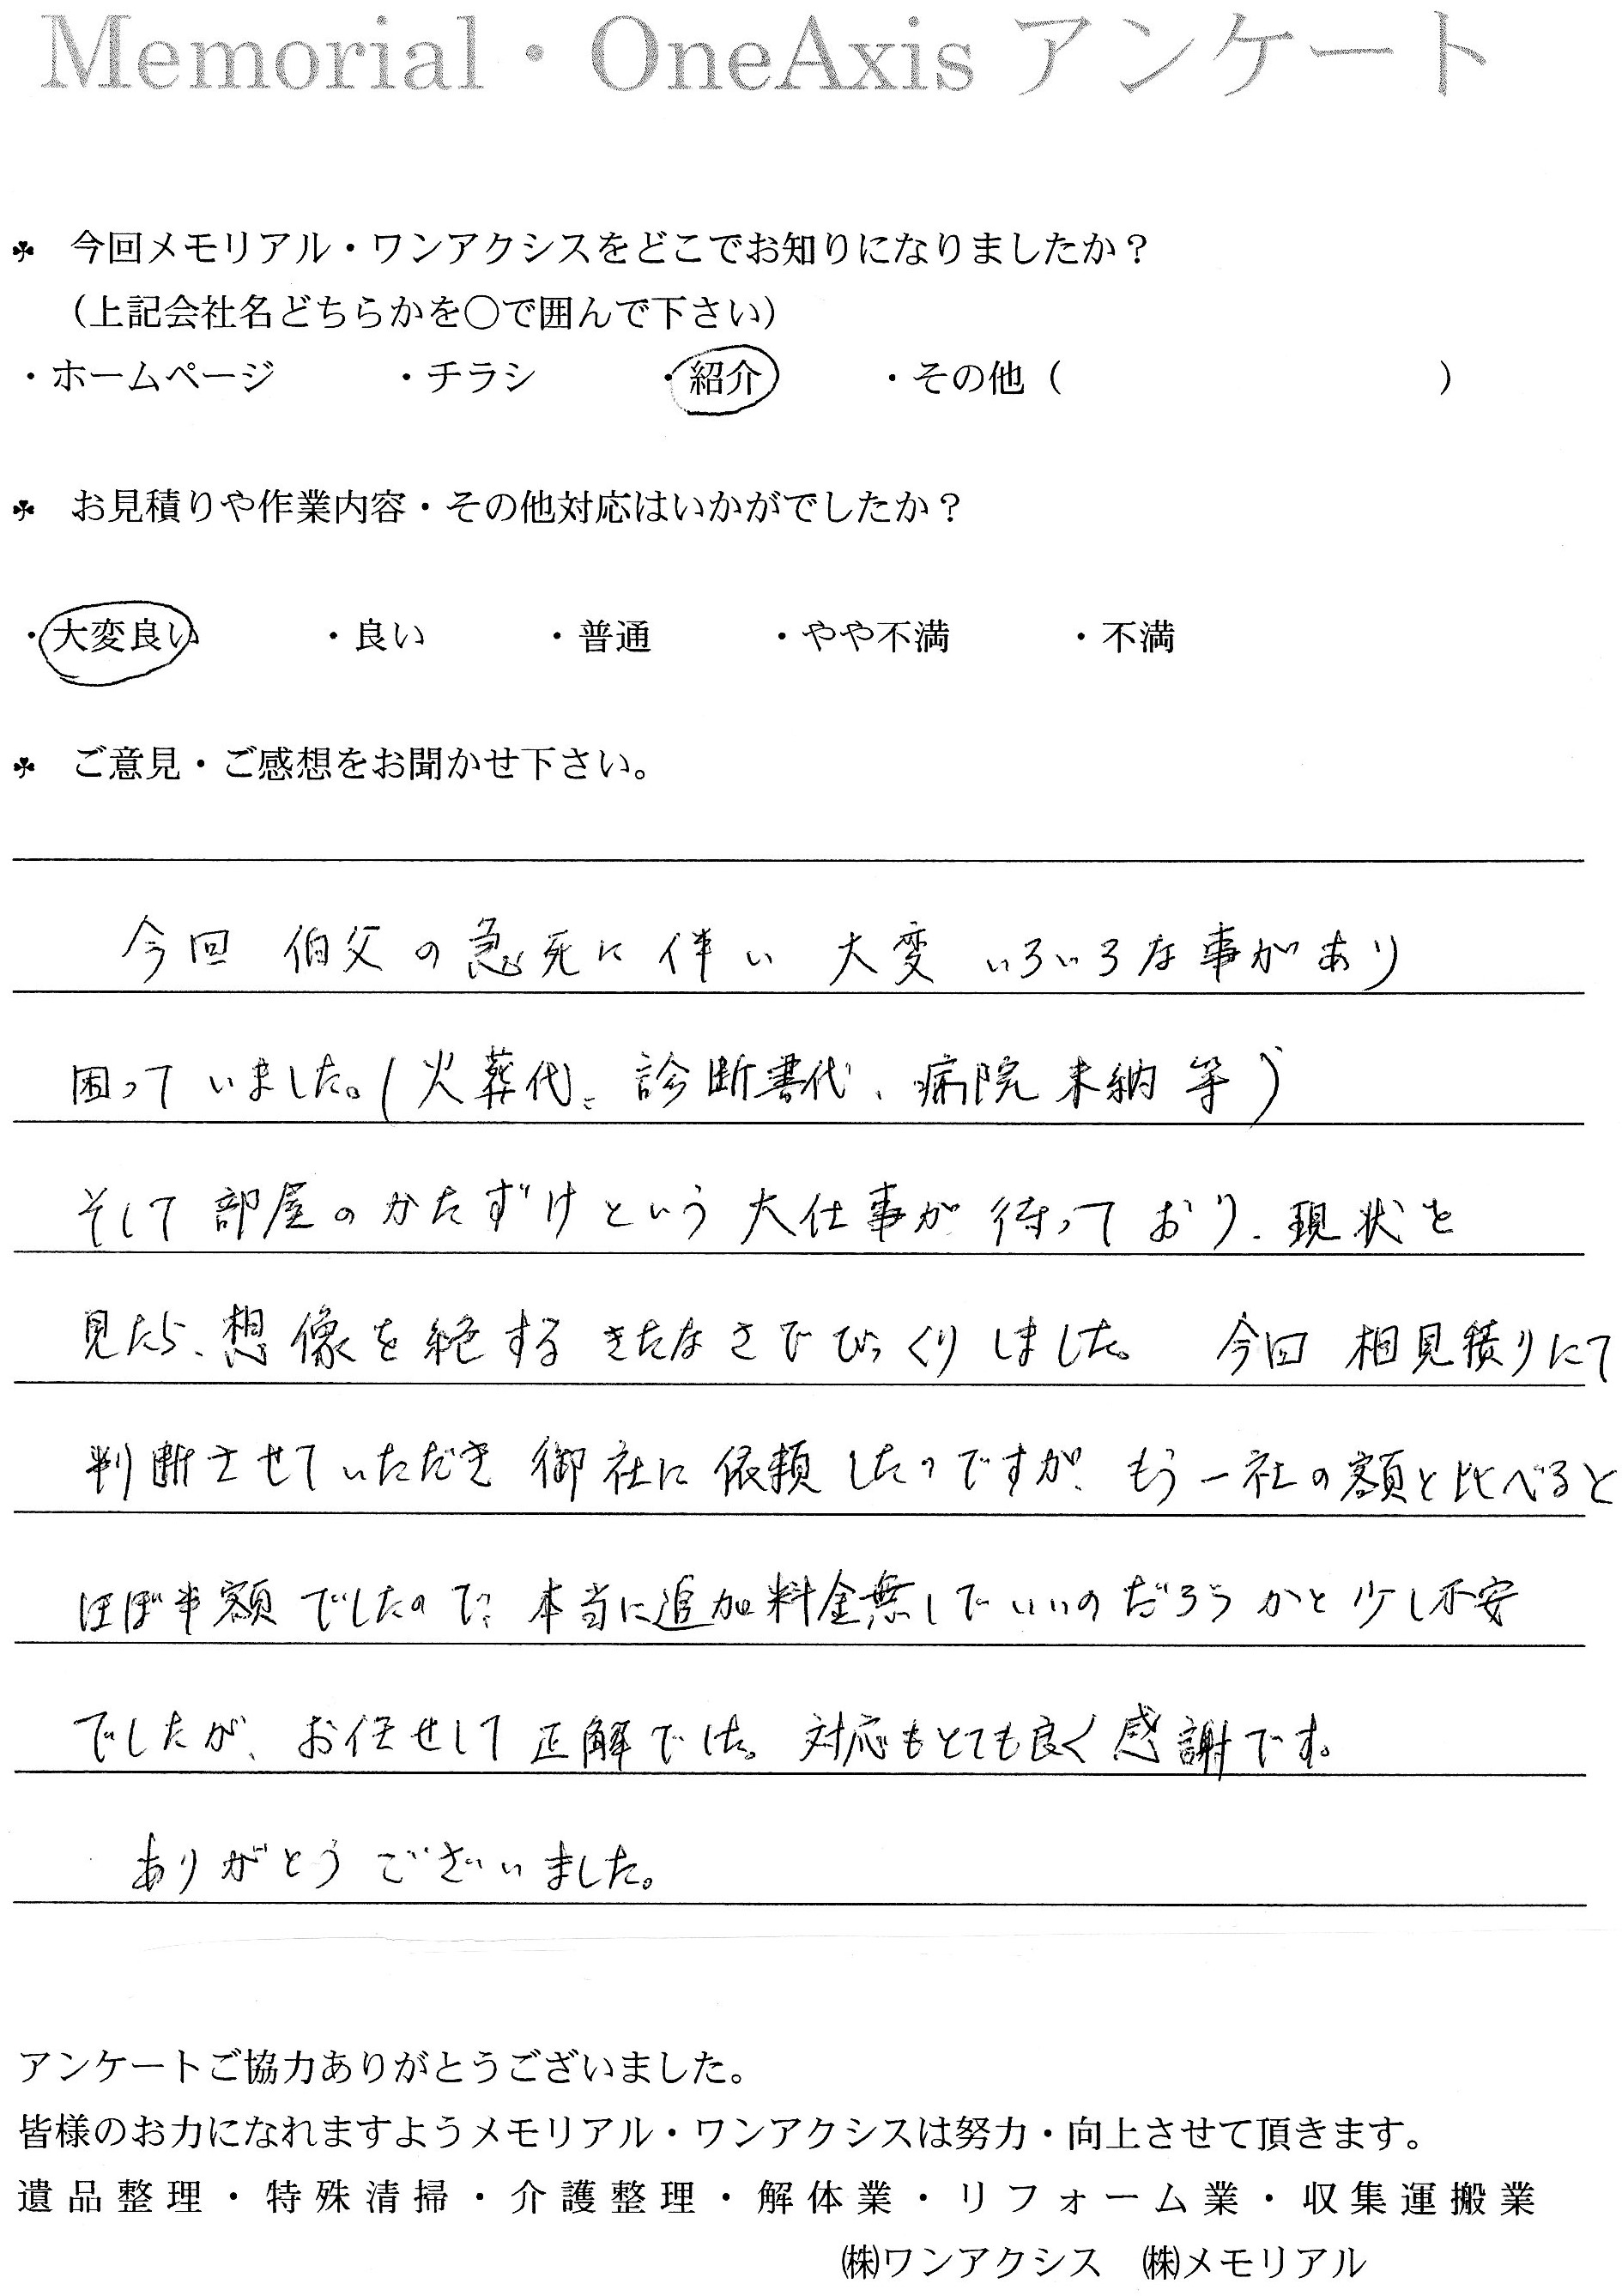 Memorial・OneAxis アンケート
♣ 今回メモリアル・ワンアクシスをどこでお知りになりましたか？
（上記会社名どちらかを○で囲んで下さい）
・ホームページ ・チラシ ・紹介 ・その他（ ）
♣ お見積りや作業内容・その他対応はいかがでしたか？
・大変良い ・良い ・普通 ・やや不満 ・不満
♣ ご意見・ご感想をお聞かせ下さい。
今回 伯父の急死に伴い 大変 いろいろな事があり
困っていました。(火葬代、診断書代、病院未納 等)
そして部屋のかたずけという大仕事が待っており、現状を
見たら、想像を絶するきたなさでびっくりしました。 今回 相見積りにて
判断させていただき 御社に依頼したのですが、もう一社の額と比べると
ほぼ半額でしたので、本当に追加料金無しでいいのだろうかと少し不安
でしたが、お任せして正解でした。対応もとても良く感謝です。
ありがとうございました。
アンケートご協力ありがとうございました。
皆様のお力になれますようメモリアル・ワンアクシスは努力・向上させて頂きます。
遺品整理・特殊清掃・介護整理・解体業・リフォーム業・収集運搬業
㈱ワンアクシス ㈱メモリアル